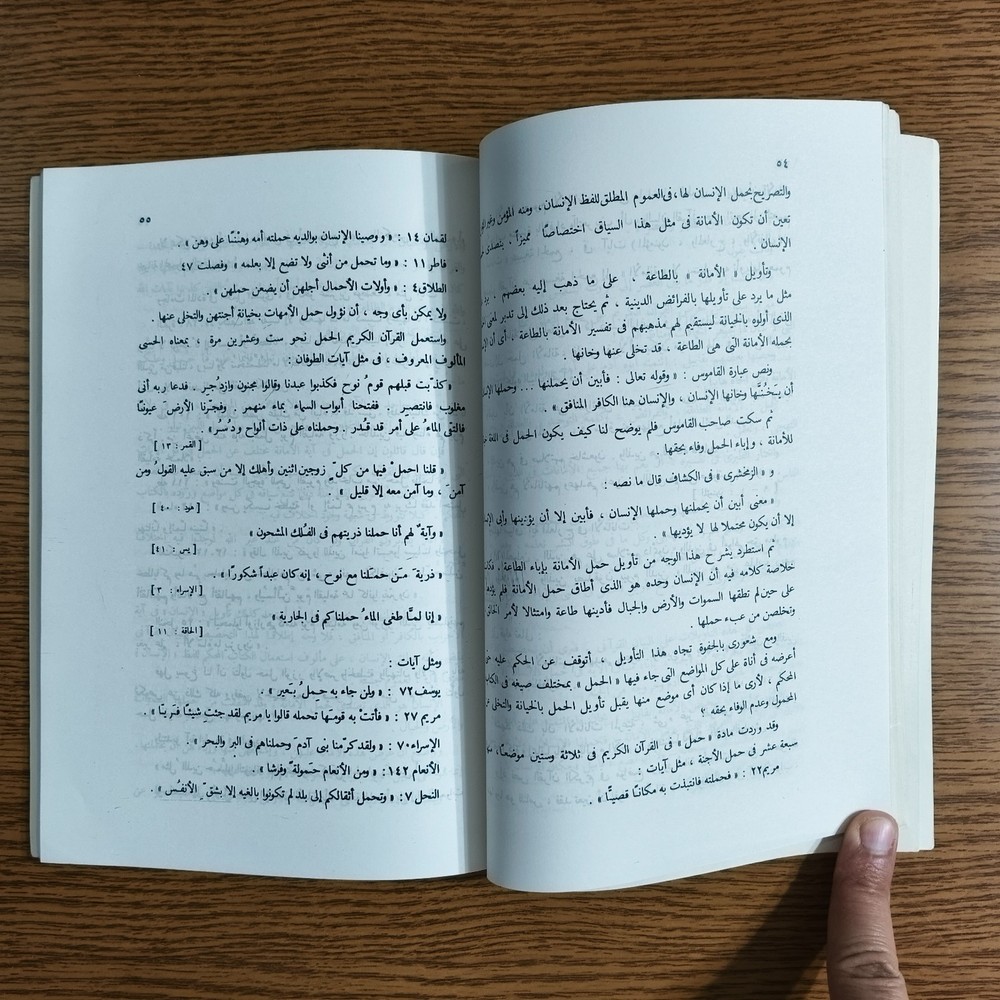 ٥٤
والتصريح بحمل الإنسان لها، فى العموم المطلق للفظ الإنسان، ومنه المؤمن وغير
تعين أن تكون الأمانة فى مثل هذا السياق اختصاصًا مميزاً. يتصدى
الإنسان.
وتأويل «الأمانة» بالطاعة، على ما ذهب إليه بعضهم،
مثل ما يرد على تأويلها بالفرائض الدينية، ثم يحتاج بعد ذلك إلى تدبر
الذى أولوه بالخيانة ليستقيم لهم مذهبهم فى تفسير الأمانة بالطاعة. أى أن
بحمله الأمانة التى هى الطاعة، قد تخلى عنها وخانها.
ونص عبارة القاموس: «وقوله تعالى: فأبين أن يحملنها ... وحملها
أن يَخُنَّها وخانها الإنسان، والإنسان هنا الكافر المنافق».
ثم سكت صاحب القاموس فلم يوضح لنا كيف يكون الحمل فى اللغة
للأمانة، وإباء الحمل وفاء بحقها.
و «الزمخشرى» فى الكشاف قال ما نصه:
«معنى أبين أن يحملنها وحملها الإنسان، فأبين إلا أن يؤدينها وأبى
إلا أن يكون محتملا لها لا يؤديها».
ثم استطرد يشرح هذا الوجه من تأويل حمل الأمانة بإباء الطاعة.
خلاصة كلامه فيه أن الإنسان وحده هو الذى أطاق حمل الأمانة فلم
على حين لم تطقها السموات والأرض والجبال فأدينها طاعة وامتثالا لأمر
وتخلصن من عبء حملها.
ومع شعورى بالجفوة تجاه هذا التأويل، أتوقف عن الحكم عليه
أعرضه فى أناة على كل المواضع التى جاء فيها «الحمل» بمختلف صيغه فى
المحكم، لأرى ما إذا كان أى موضع منها يقبل تأويل الحمل بالخيانة والتخلى
المحمول وعدم الوفاء بحقه؟
وقد وردت مادة «حمل» فى القرآن الكريم فى ثلاثة وستين موضعًا،
سبعة عشر فى حمل الأجنة، مثل آيات:
مريم٢٢: «فحملته فانتبذت به مكانًا قصيًّا».
٥٥
لقمان ١٤: «ووصينا الإنسان بوالديه حملته أمه وهْنًا على وهن».
فاطر ١١: «وما تحمل من أنثى ولا تضع إلا بعلمه» وفصلت ٤٧.
الطلاق٤: «وأولات الأحمال أجلهن أن يضعن حملهن».
ولا يمكن بأى وجه، أن نؤول حمل الأمهات بخيانة أجنتهن والتخلى عنها.
واستعمل القرآن الكريم الحمل نحو ست وعشرين مرة، بمعناه الحسى
المألوف المعروف، فى مثل آيات الطوفان:
«كذّبت قبلهم قومُ نوح فكذبوا عبدنا وقالوا مجنون وازدُجِر. فدعا ربه أنى
مغلوب فانتصِر. ففتحنا أبواب السماء بماء منهمر. وفجّرنا الأرضَ عيونًا
فالتقى الماءُ على أمر قد قُدر. وحملناه على ذات ألواح ودُسُر».
[القمر: ١٣]
«قلنا احملْ فيها من كلٍّ زوجين اثنين وأهلك إلا من سبق عليه القولُ ومن
آمنَ، وما آمن معه إلا قليل».
[هود: ٤٠]
«وآيةٌ لهم أنا حملنا ذريتهم فى الفُلك المشحون»
[يس: ٤١]
«ذريةَ مَن حملنا مع نوح، إنه كان عبداً شكورًا».
[الإسراء: ٣]
«إنا لمَّا طغى الماءُ حملناكم فى الجارية»
[الحاقة: ١١]
ومثل آيات:
يوسف ٧٢: «ولمن جاء به حِملُ بَعير».
مريم ٢٧: «فأتتْ به قومَها تحمله قالوا يا مريم لقد جئتِ شيئًا فَريًّا».
الإسراء٧٠: «ولقد كرّمنا بنى آدمَ وحملناهم فى البر والبحر».
الأنعام ١٤٢: «ومن الأنعام حَمولةً وفرشا».
النحل ٧: «وتحمل أثقالكم إلى بلد لم تكونوا بالغيه إلا بشقِّ الأنفُس».